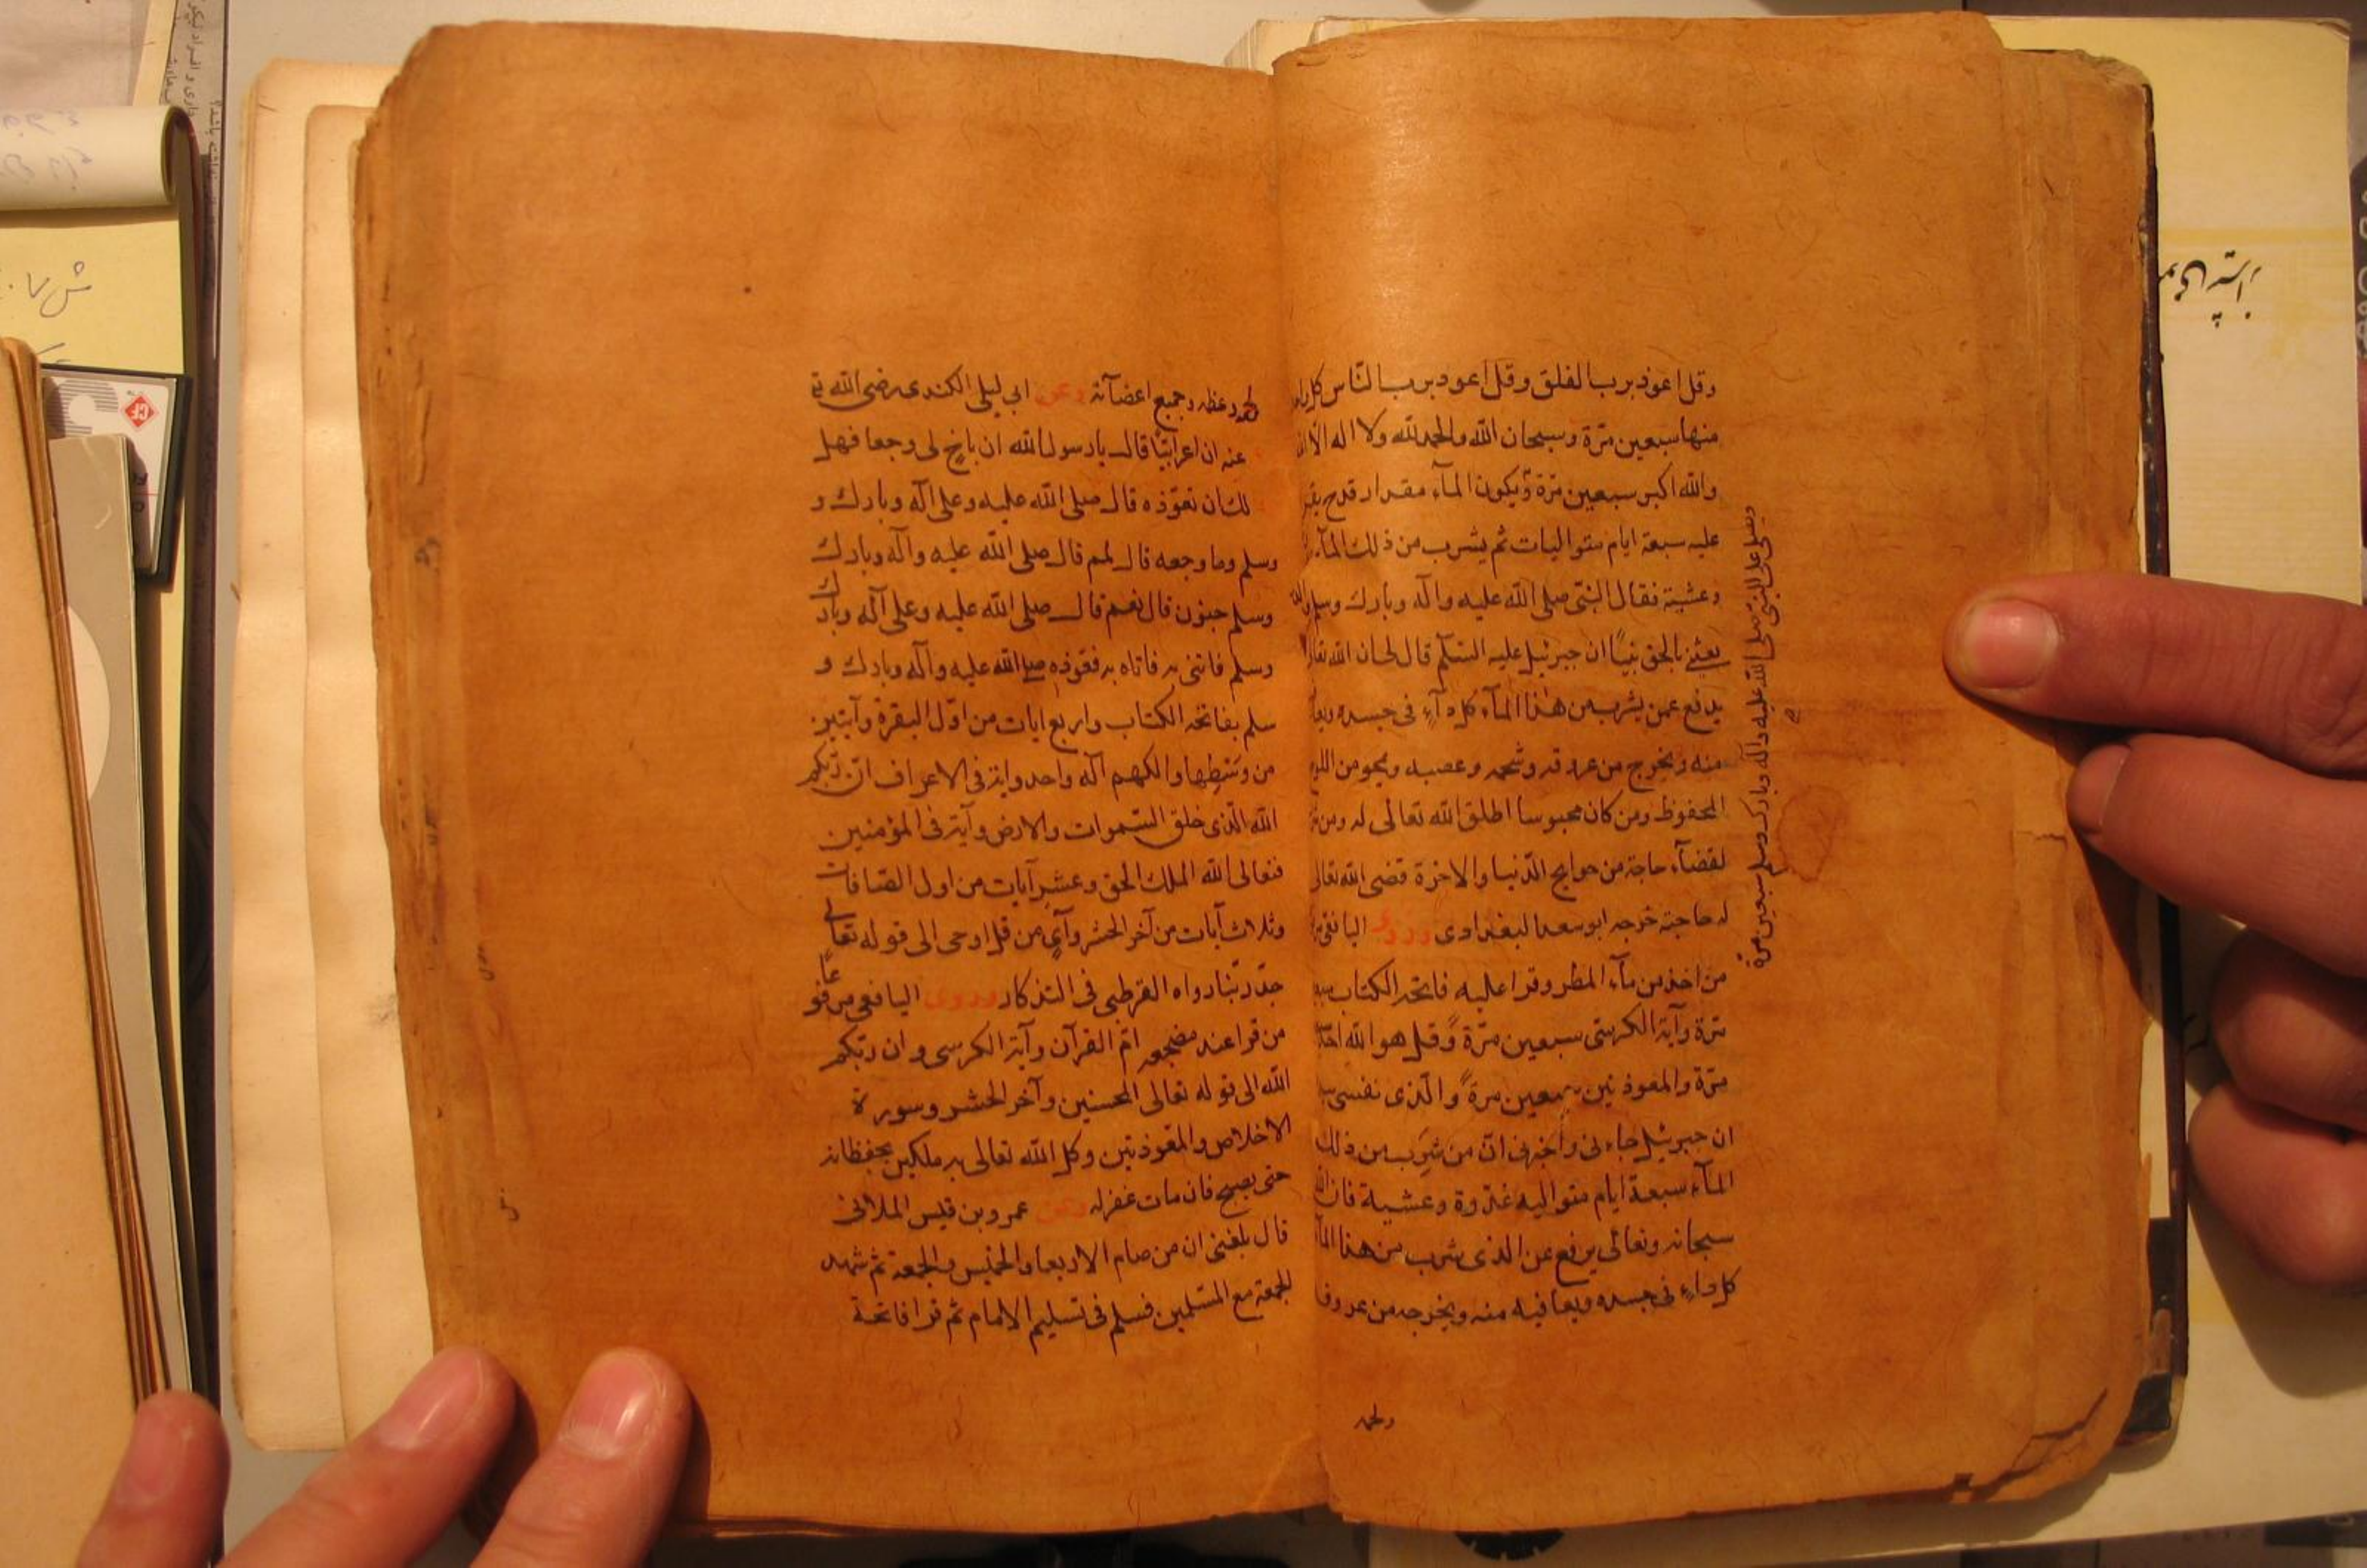 وقل اعوذ برب الفلق وقل اعوذ برب الناس كل
منها سبعين مرّة وسبحان الله والحمد لله ولا اله الّا الله
والله اكبر سبعين مرّة ويكون المآء مقدار قدح
عليه سبعة ايام متواليات ثم يشرب من ذلك المآء
وعشية فقال النبّى صلى الله عليه وآله وبارك وسلم
بعثنى بالحق نبيّا ان جبرئيل عليه السّلم قال لى ان الله
يدفع عمن يشرب من هذا المآء كل دآءٍ فى جسده
منه ويخرج من عروقه وشحمه وعصبه ويمحو من اللوح
المحفوظ ومن كان محبوسا اطلق الله تعالى له ومن
لقضآء حاجة من حوايج الدّنيا والاخرة قضى الله تعالى
له حاجته خرجه ابو سعد البغدادى وروى اليافعى
من اخذ من مآء المطر وقرا عليه فاتحة الكتاب
مرّة وآية الكرسىّ سبعين مرّة وقل هو الله احد
مرّة والمعوذتين سبعين مرة والّذى نفسى
ان جبرئيل جاءنى واخبرنى انّ من شرب من ذلك
المآء سبعة ايام متواليه غدوة وعشية فان
سبحانه وتعالى يرفع عن الذى شرب من هذا المآء
كل داءٍ فى جسده ويعافيه منه ويخرجه من عروقه
ولحمه
ويصلى على النبّى صلى الله عليه وآله وبارك وسلم سبعين مرة
لحمه وعظمه وجميع اعضآئه وعن ابى ليلى الكندى رضى الله
عنه ان اعرابيّا قال يا رسول الله ان باخٍ لى وجعا فهل
لك ان تعوّذه قال صلى الله عليه وعلى آله وبارك و
وسلم وما وجعه قال لمم قال صلى الله عليه وآله وبارك
وسلم جنون قال نعم قال صلى الله عليه وعلى آله وبارك
وسلم فاتنى به فاتاه به فعوّذه صلى الله عليه وآله وبارك و
سلم بفاتحة الكتاب واربع ايات من اوّل البقرة وآيتين
من وسطها والهكم اله واحد واية فى الاعراف انّ ربّكم
الله الّذى خلق السّموات والارض وآية فى المؤمنين
فتعالى الله الملك الحق وعشر آيات من اول الصّافات
وثلاث آيات من آخر الحشر وآىٍ من قل اوحى الى قوله تعالى
جدّ ربّنا رواه القرطبى فى التذكار وروى اليافعى مرفوعاً
من قرا عند مضجعه امّ القرآن وآية الكرسى وان ربّكم
الله الى قوله تعالى المحسنين وآخر الحشر وسورة
الاخلاص والمعوّذتين وكل الله تعالى به ملكين يحفظانه
حتى يصبح فان مات غفر له وعن عمرو بن قيس الملائى
قال بلغنى ان من صام الاربعا والخميس والجمعة ثم شهد
الجمعة مع المسلمين فسلم فى تسليم الامام ثم قرا فاتحة